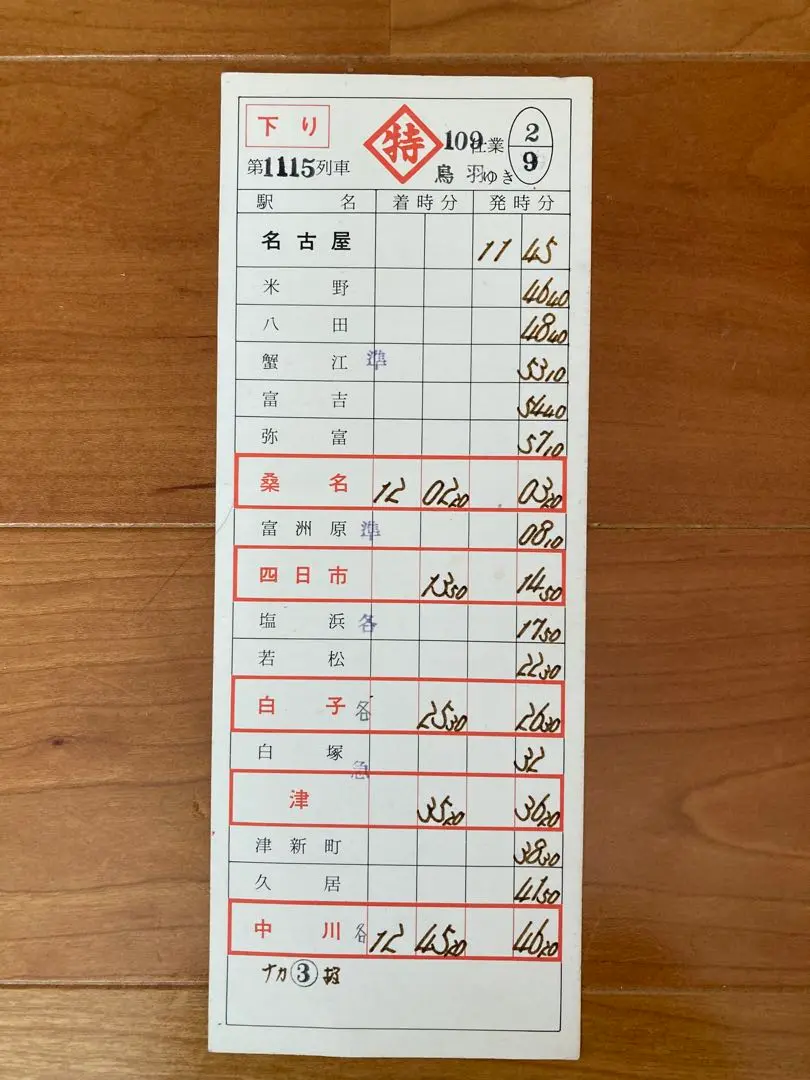 下り 特 109仕業 2
第1115列車 鳥羽ゆき 9
駅名 着時分 発時分
名古屋 11 45
米野 46 40
八田 48 40
蟹江 準 53 10
富吉 54 40
弥富 57 10
桑名 12 02 20 03 20
富洲原 準 08 10
四日市 13 50 14 50
塩浜 各 17 50
若松 22 30
白子 各 25 30 26 30
白塚 32
急
津 35 20 36 20
津新町 38 30
久居 41 50
中川 各 12 45 20 46 20
ナカ ③